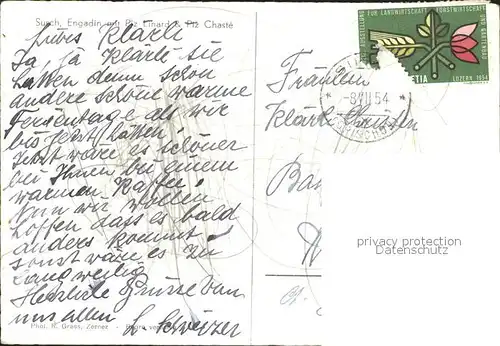 Susch, Engadin mit Piz Linard & Piz Chasté
Liebes Klärli
Ja, ja Klärli sie
hatten denn schon
andere schöne warme
Ferientage als wir
bis jetzt hatten.
Jetzt wäre es schöner
bei Ihnen bei einem
warmen Kaffee!
Nun wir wollen
hoffen dass es bald
anders kommt
sonst wäre es zu
langweilig
Herzliche Grüsse von
uns allen
Schweizer
Phot. R. Grass, Zernez
AUSSTELLUNG FÜR LANDWIRTSCHAFT FORSTWIRTSCHAFT UND GARTENBAU
HELVETIA
LUZERN 1954
-8.VII.54
Fräulein
Klärli
privacy protection
by AnsichtskartenMarkt.de